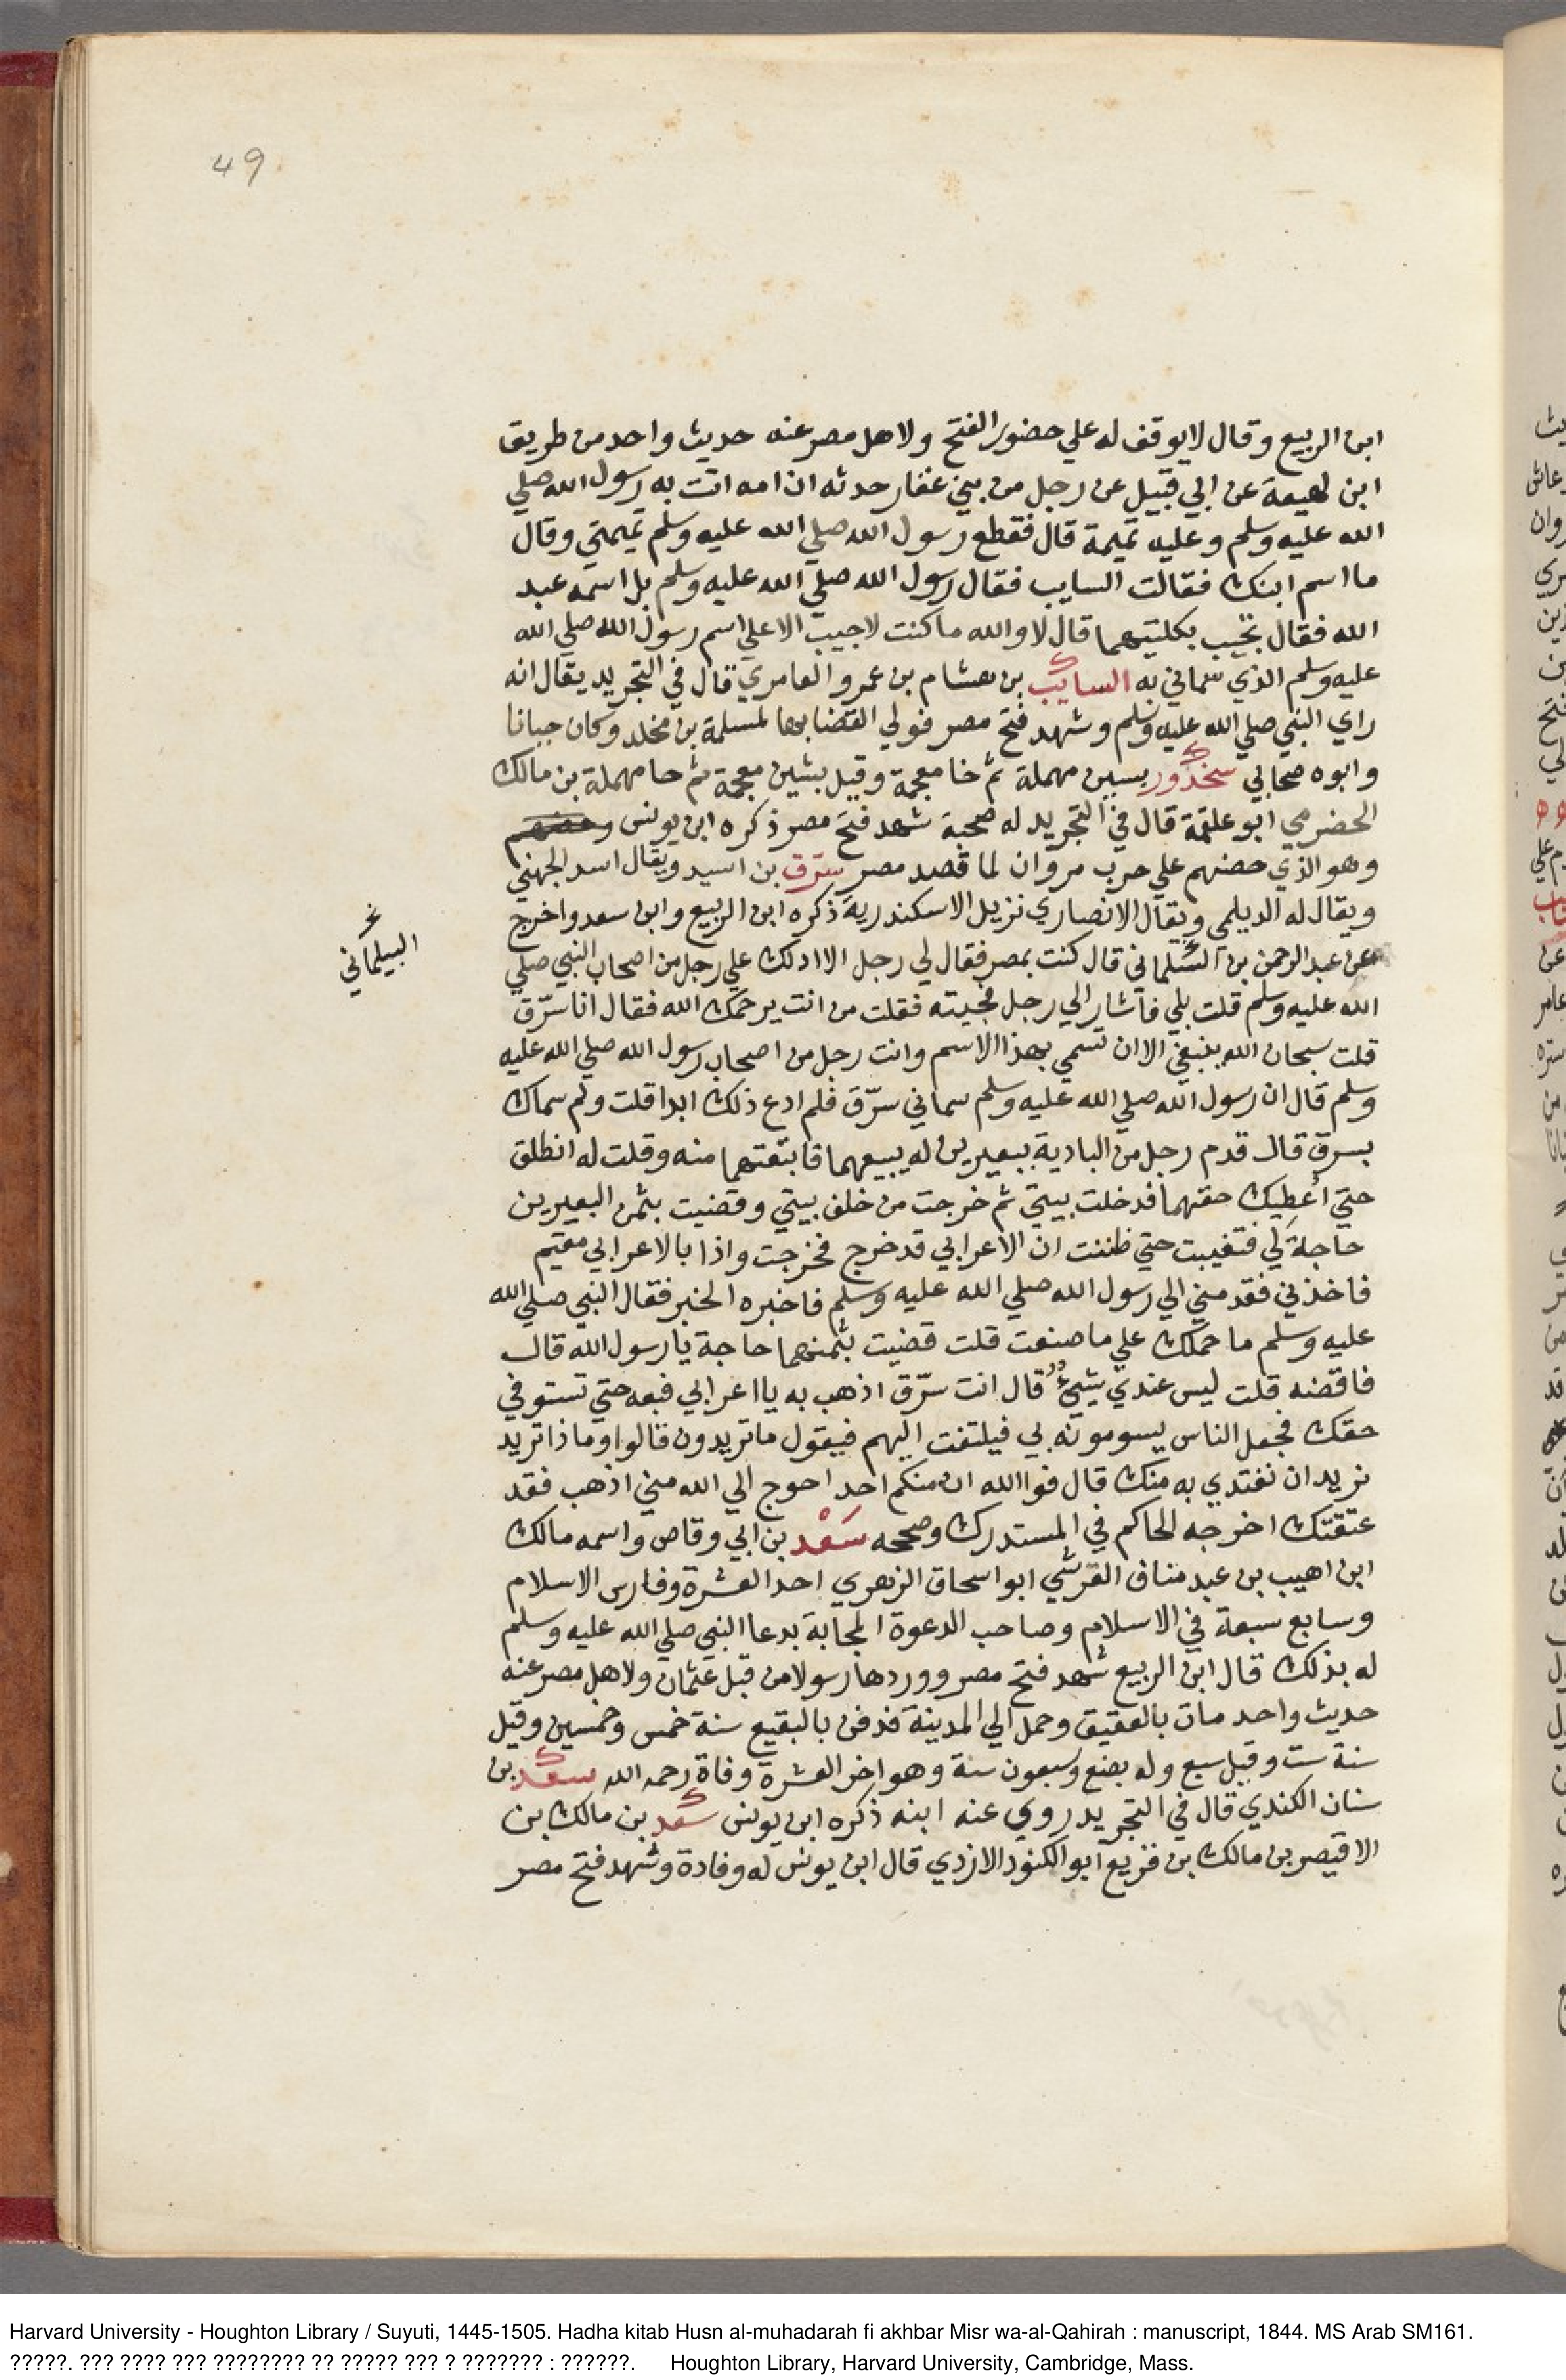 49
ابن الربيع وقال لا يوقف له علي حضور الفتح ولاهل مصر عنه حديث واحد من طريق
ابن لهيعة عن ابي قبيل عن رجل من بني غفار حدثه ان امه اتت به رسول الله صلي
الله عليه وسلم وعليه تميمة قال فقطع رسول الله صلي الله عليه وسلم تميمتي وقال
ما اسم ابنك فقالت السايب فقال رسول الله صلي الله عليه وسلم بل اسمه عبد
الله فقال بكليتهما قال لا والله ما كنت لاجيب الا علي اسم رسول الله صلي الله
عليه وسلم الذي سماني به السايب بن هشام بن عمرو العامري قال في التجريد يقال انه
راي النبي صلي الله عليه وسلم وشهد فتح مصر فولي القضا بها لمسلمة بن مخلد وكان جبانا
وابوه صحابي سخدور بسين مهملة ثم خا معجمة وقيل بشين معجمة ثم حا مهملة بن مالك
الحضرمي ابو علقمة قال في التجريد له صحبة شهد فتح مصر ذكره ابن يونس
وهو الذي حضهم علي حرب مروان لما قصد مصر سرّق بن اسيد ويقال اسد الجهني
ويقال له الديلمي ويقال الانصاري نزيل الاسكندرية ذكره ابن الربيع وابن سعد واخرج
عن عبد الرحمن بن السلماني قال كنت بمصر فقال لي رجل الا ادلك علي رجل من اصحاب النبي صلي
البيلماني
الله عليه وسلم قلت بلي فاشار الي رجل فجيته فقلت من انت يرحمك الله فقال انا سرّق
قلت سبحان الله ينبغي الا ان تسمي بهذا الاسم وانت رجل من اصحاب رسول الله صلي الله عليه
وسلم قال ان رسول الله صلي الله عليه وسلم سماني سرّق فلم ادع ذلك ابدا قلت ولم سماك
بسرق قال قدم رجل من البادية ببعيرين له يبيعهما فابتعتهما منه وقلت له انطلق
حتي أعطيك حقهما فدخلت بيتي ثم خرجت من خلف بيتي وقضيت بثمن البعيرين
حاجة لي فتغيبت حتي ظننت ان الاعرابي قد خرج فخرجت واذا بالاعرابي مقيم
فاخذني فقدمني الي رسول الله صلي الله عليه وسلم فاخبره الخبر فقال النبي صلي الله
عليه وسلم ما حملك علي ما صنعت قلت قضيت بثمنهما حاجة يا رسول الله قال
فاقضه قلت ليس عندي شيءٌ قال انت سرّق اذهب به يا اعرابي فبعه حتي تستوفي
حقك فجعل الناس يسومونه بي فيلتفت اليهم فيقول ما تريدون قالوا وماذا تريد
نريد ان نفتدي به منك قال فوالله ان منكم احد احوج الي الله مني اذهب فقد
عتقتك اخرجه الحاكم في المستدرك وصححه سَعْد بن ابي وقاص واسمه مالك
ابن اهيب بن عبد مناف القرشي ابو اسحاق الزهري احد العشرة وفارس الاسلام
وسابع سبعة في الاسلام وصاحب الدعوة المجابة بدعا النبي صلي الله عليه وسلم
له بذلك قال ابن الربيع شهد فتح مصر ووردها رسولا من قبل عثمان ولاهل مصر عنه
حديث واحد مات بالعقيق وحمل الي المدينة فدفن بالبقيع سنة خمس وخمسين وقيل
سنة ست وقيل سبع وله بضع وسبعون سنة وهو اخر العشرة وفاة رحمه الله سعد بن
سنان الكندي قال في التجريد روي عنه ابنه ذكره ابن يونس سعد بن مالك بن
الاقيصر بن مالك بن قريع ابو الكنود الازدي قال ابن يونس له وفادة وشهد فتح مصر
Harvard University - Houghton Library / Suyuti, 1445-1505. Hadha kitab Husn al-muhadarah fi akhbar Misr wa-al-Qahirah : manuscript, 1844. MS Arab SM161.
?????. ??? ???? ??? ???????? ?? ????? ??? ? ??????? : ??????. Houghton Library, Harvard University, Cambridge, Mass.